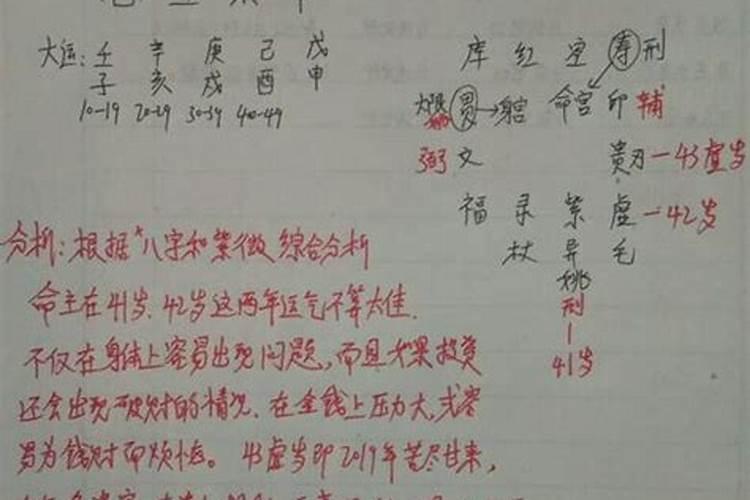 大运: 壬 辛 庚 己 戊
子 亥 戌 酉 申
10-19 20-29 30-39 40-49
库 红 空 寿 刑
大限 贯→身宫 命宫 印 辅
弼 文 贵刃—43虚岁
福 录 紫 虚—42岁
杖 异 毛
姚
刑
|
41岁
分析: 根据"八字和紫微"综合分析
命主在41岁、42岁这两年运气不算太佳.
不仅在身体上容易出现问题,而且如果投资
还会出现破财的情况、在金钱上压力大,或容
易为钱财而烦恼。43虚岁即2019年苦尽甘来,